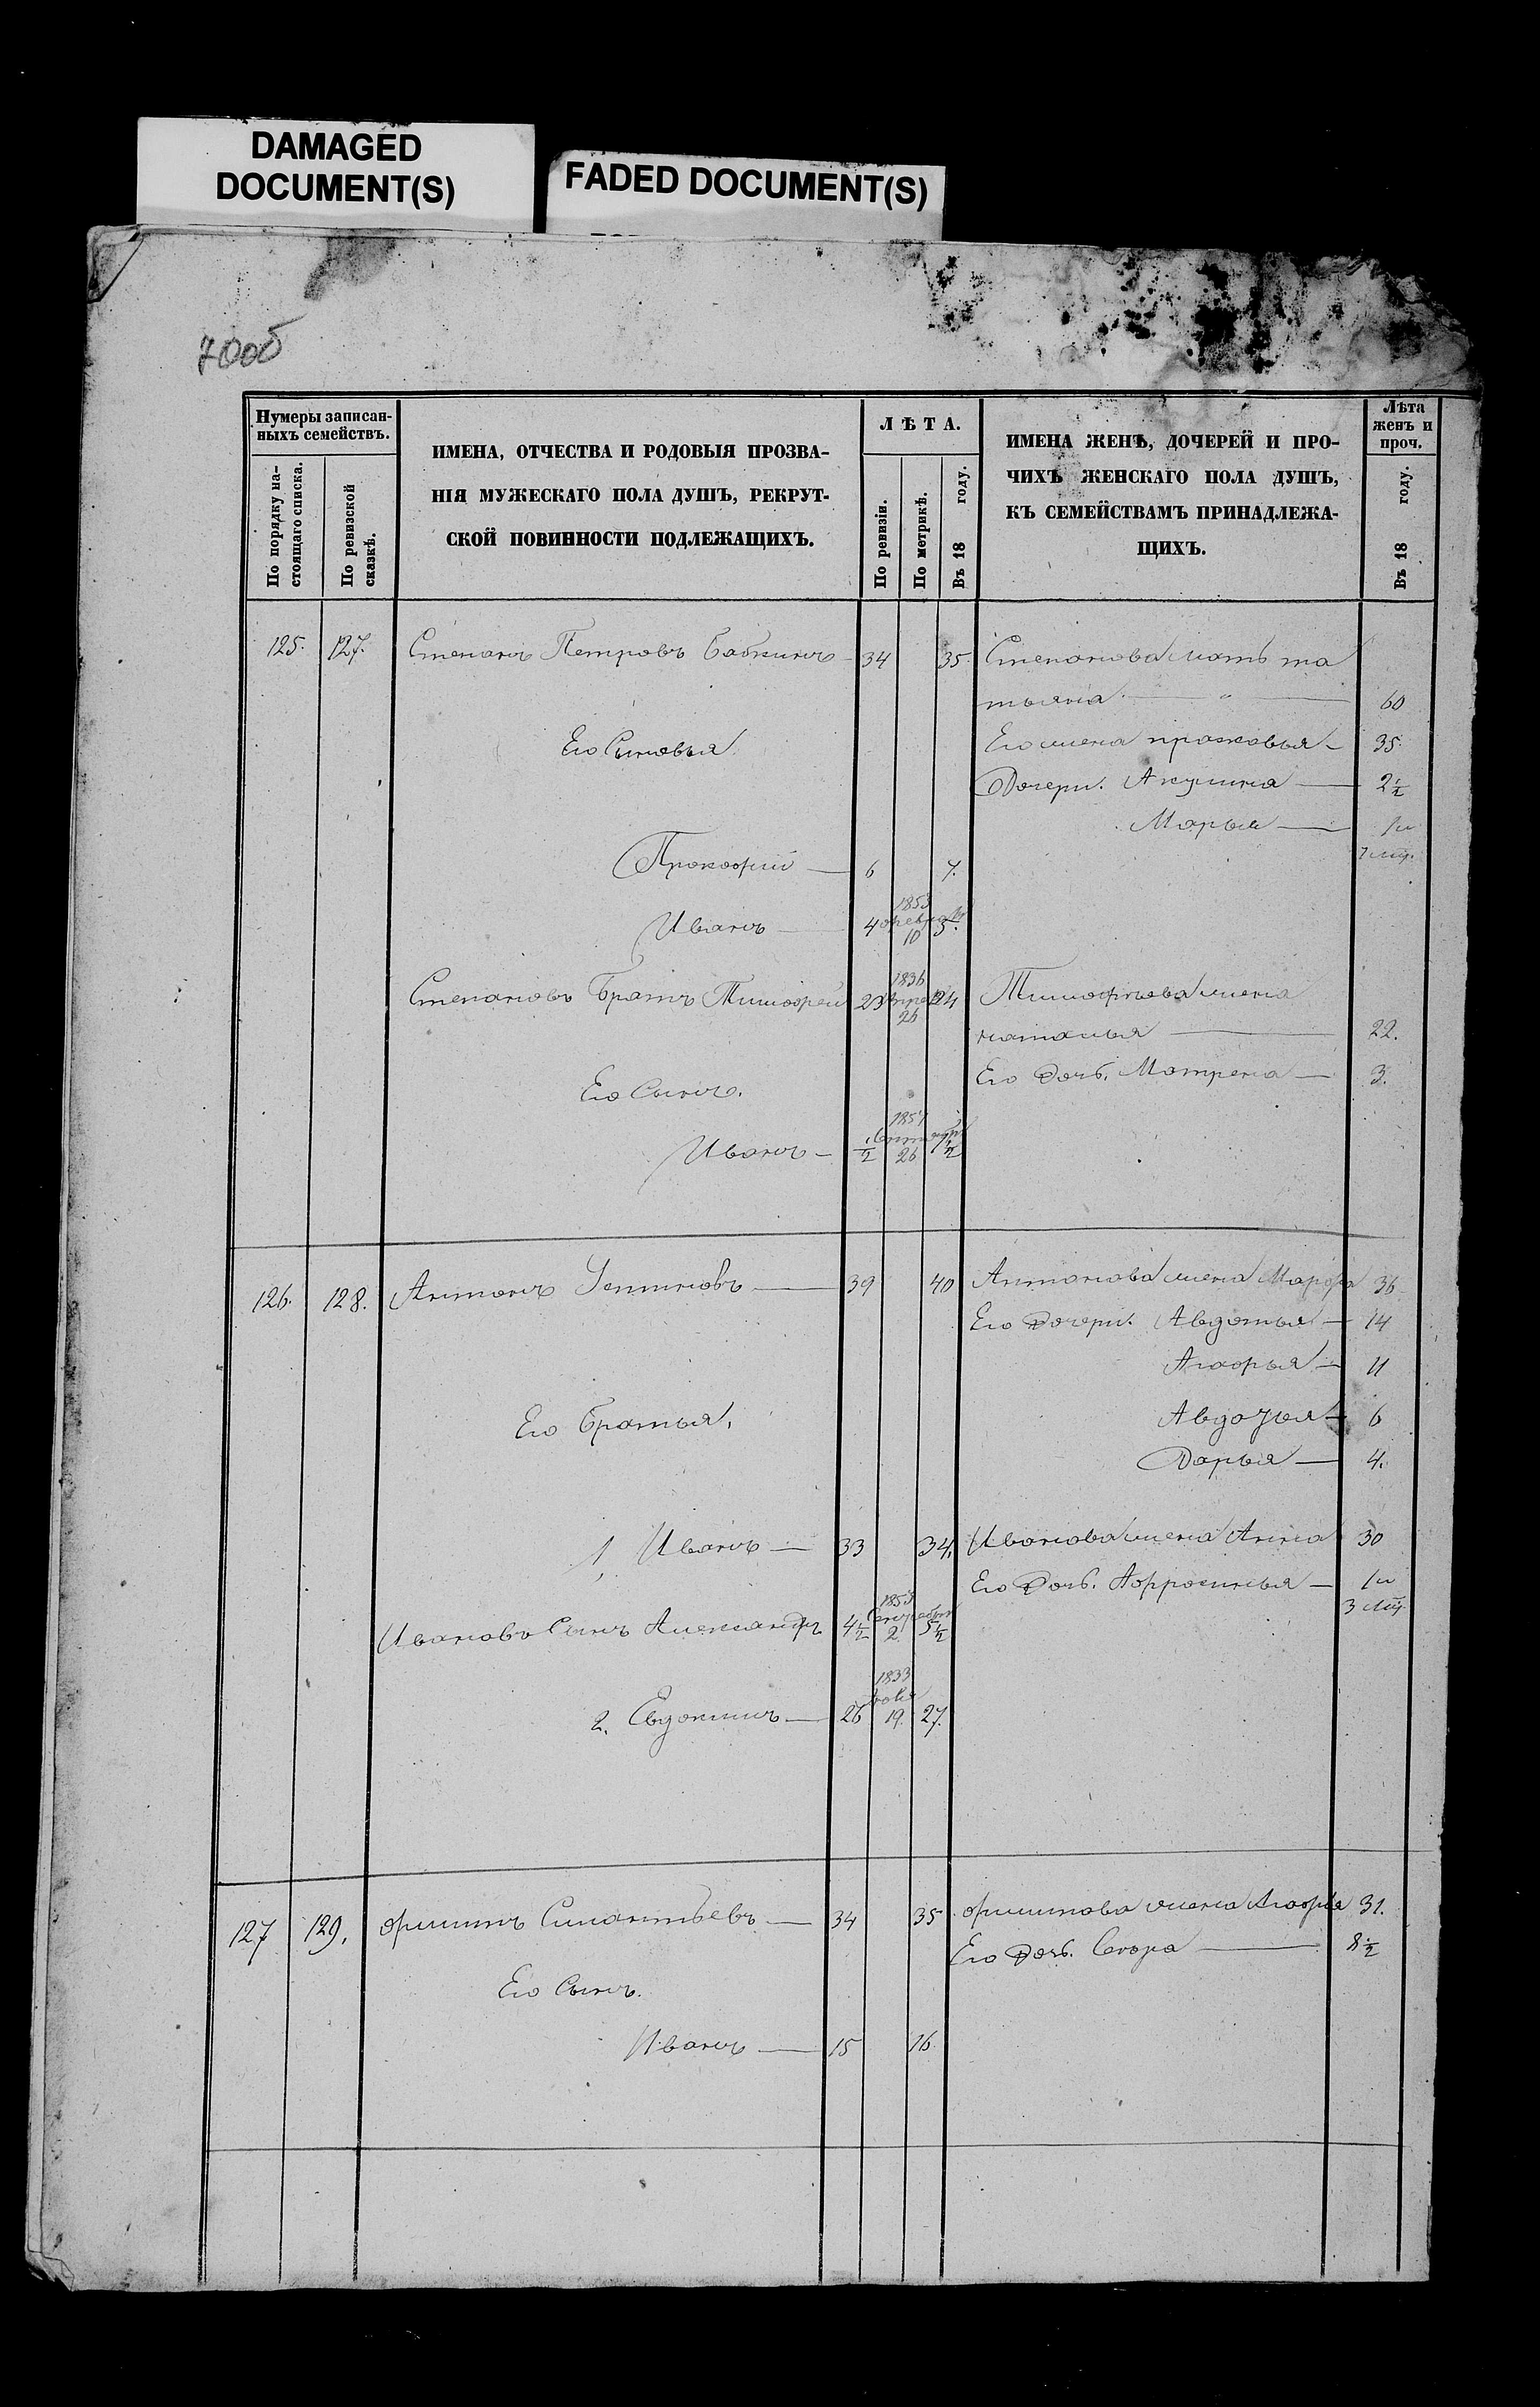 DAMAGED
DOCUMENT(S)
FADED DOCUMENT(S)
70об
Нумеры записан-
ныхъ семействъ.
По порядку на-
стоящаго списка.
По ревизской
сказкѣ.
ИМЕНА, ОТЧЕСТВА И РОДОВЫЯ ПРОЗВА-
НІЯ МУЖЕСКАГО ПОЛА ДУШЪ, РЕКРУТ-
СКОЙ ПОВИННОСТИ ПОДЛЕЖАЩИХЪ.
ЛѢТА.
По ревизіи.
По метрикѣ.
Въ 18 году.
ИМЕНА ЖЕНЪ, ДОЧЕРЕЙ И ПРО-
ЧИХЪ ЖЕНСКАГО ПОЛА ДУШЪ,
КЪ СЕМЕЙСТВАМЪ ПРИНАДЛЕЖА-
ЩИХЪ.
Лѣта
женъ и
проч.
Въ 18 году.
125. 127. Степанъ Петровъ Бабкинъ 34 35. Степанова мать та
тьяна — " — 60
Его Сыновья
Его жена прасковья 35.
Дочери. Акулина 2 1/2
Марья 1 и
7 мѣ.
Прокофий 6 7.
Иванъ 4 1853 февра 10 5.
Степановъ Братъ Тимофей 23 1836 26 24 Тимофѣева жена
наталья 22.
Его Дочь. Матрена 3.
Его Сынъ.
Иванъ 1/2 1857 26 1 1/2
126. 128. Антонъ Устиновъ 39 40 Антонова жена Марфа 36
Его Дочери. Авдотья 14
Агафья 11
Его Братья.
Авдотья 6
Дарья 4.
1, Иванъ 33 34. Иванова жена Анна 30
Его Дочь. Афросинья 1 и
3 мѣ.
Ивановъ Сынъ Александръ 4 1/2 1853 2. 5 1/2
2. Евдокимъ 26 1833 19. 27.
127 129. филипъ Силантьевъ 34 35 филипова жена Агафья 31.
Его Дочь. Фекла 8 1/2
Его Сынъ.
Иванъ 15 16